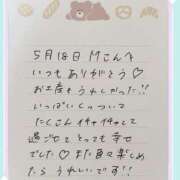 5月18日 Mさんへ
いつもありがとう♡
お土産もうれしかった!!
いっぱいくっついて
たくさんイチャイチャして
過ごせてとっても幸せ
でした♡また色々楽しめ
たらうれしいです!!